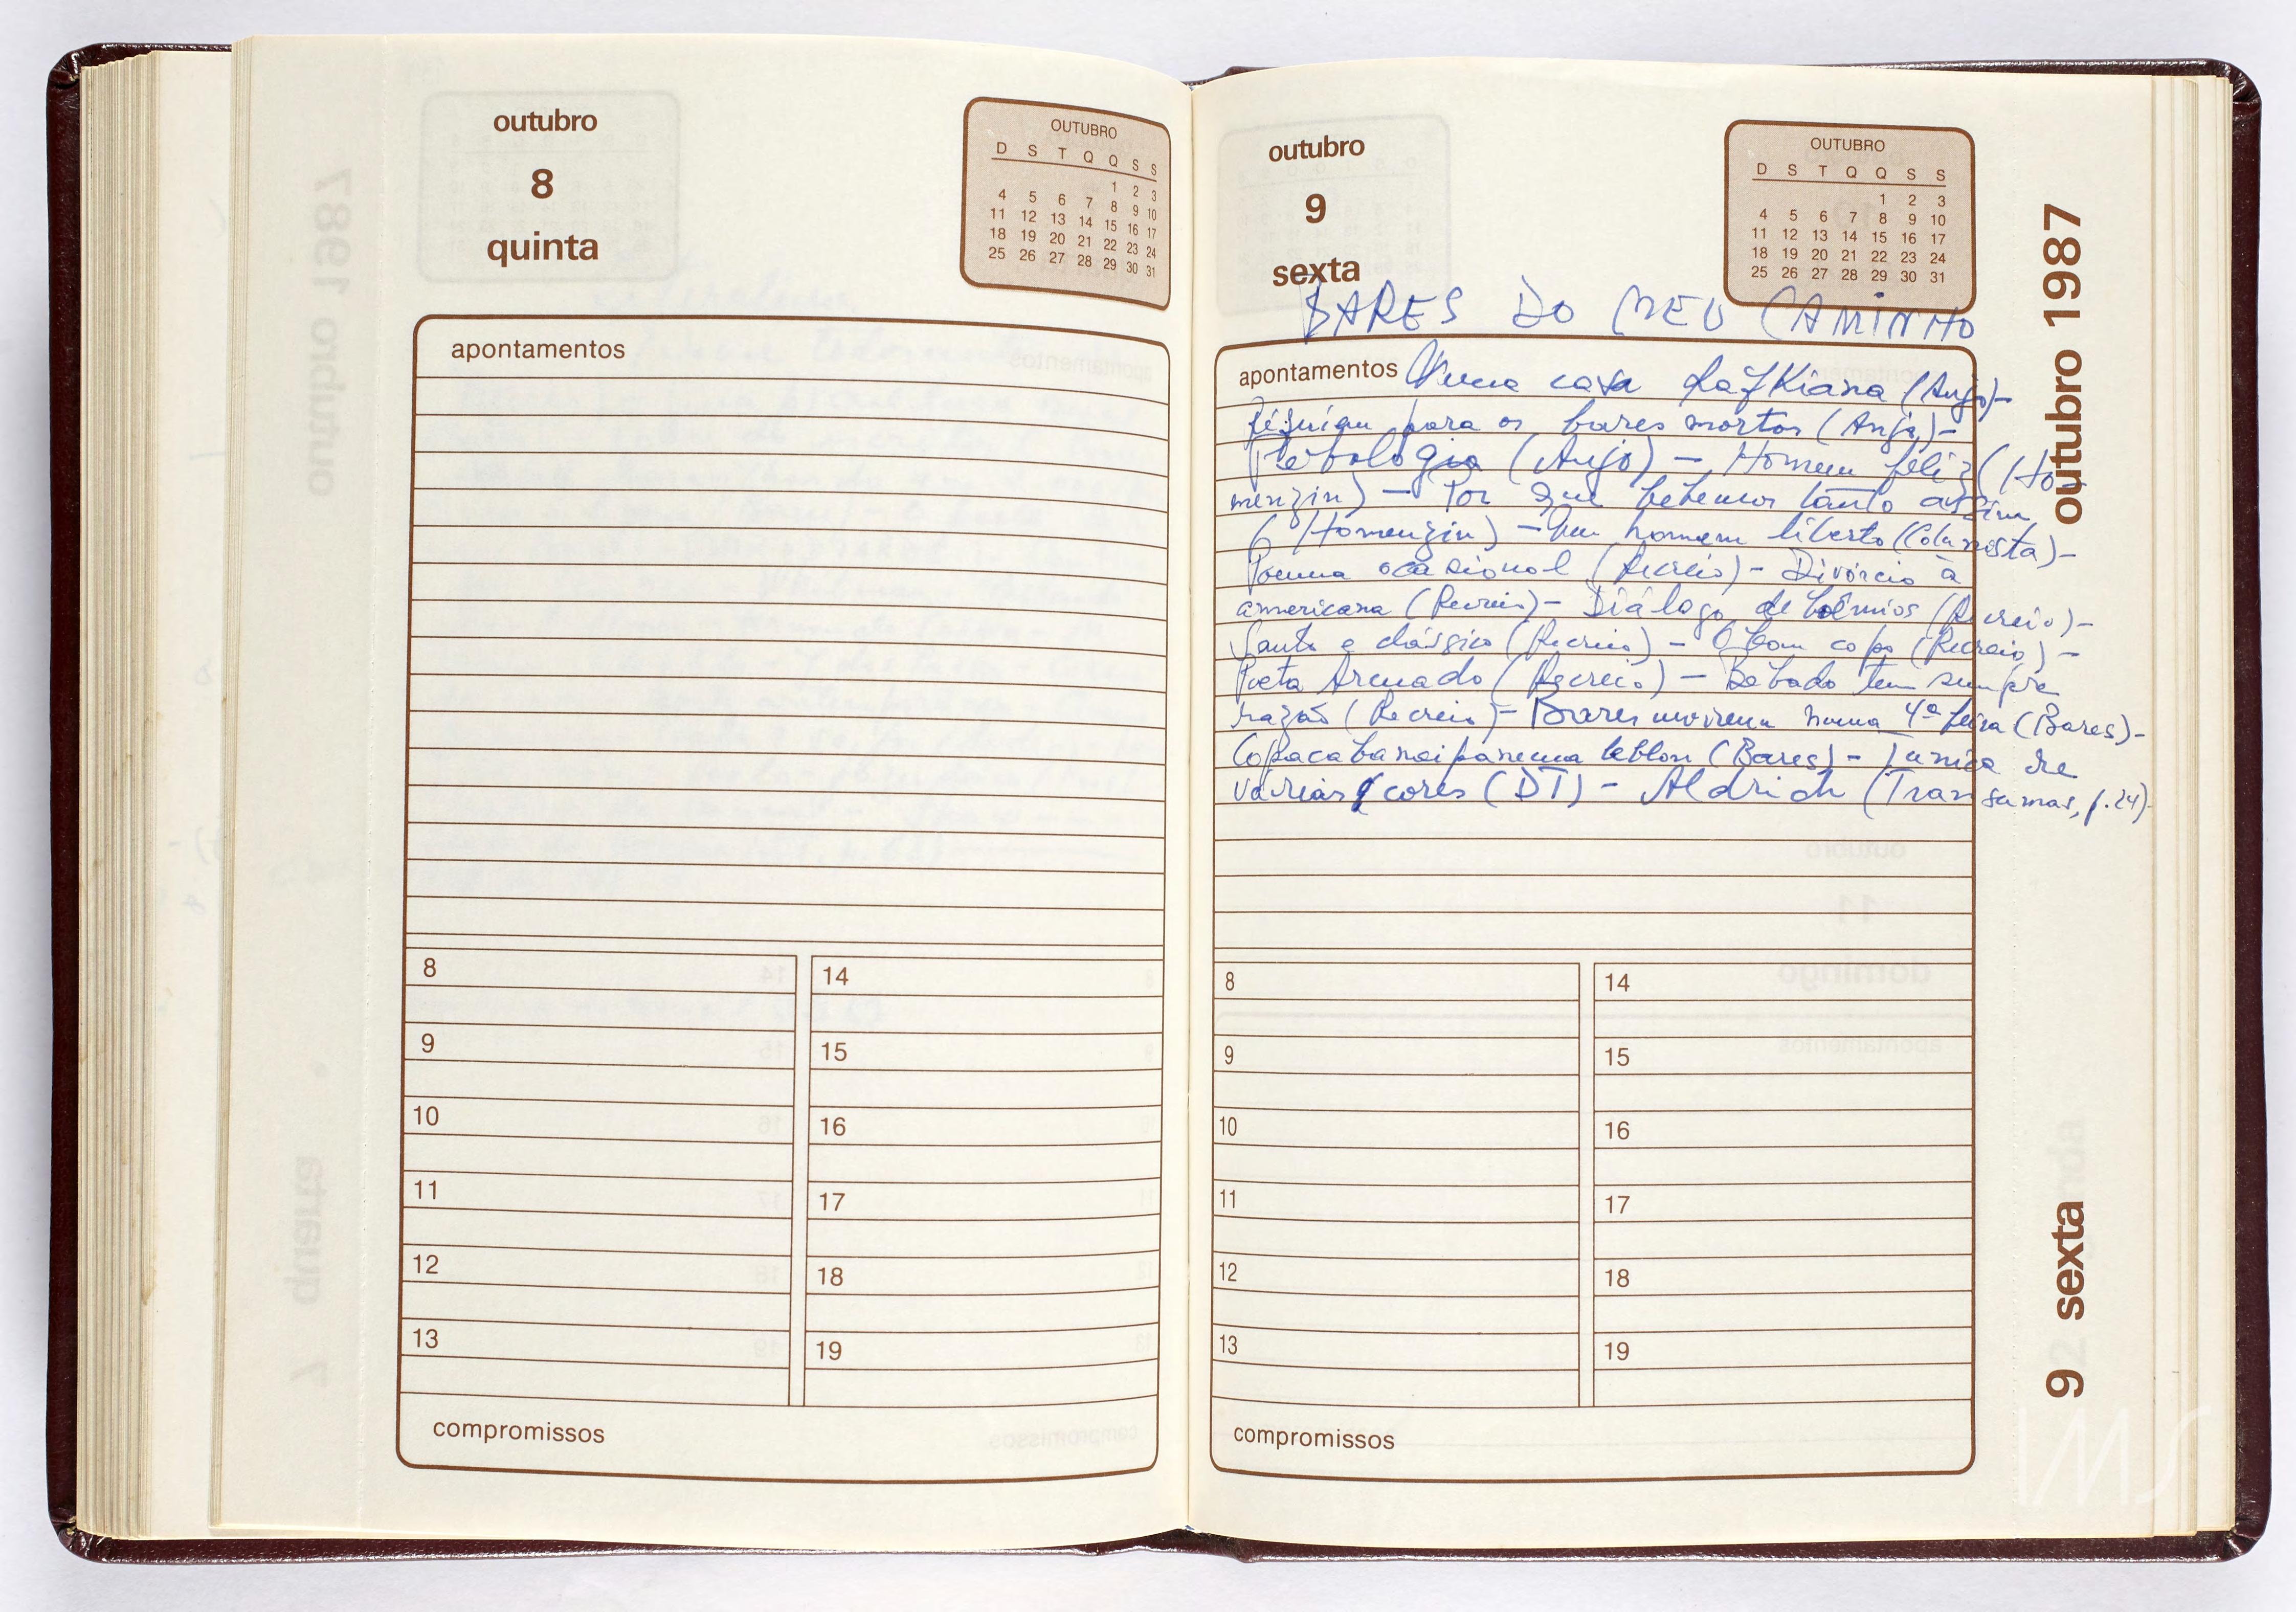 outubro
8
quinta
OUTUBRO
D S T Q Q S S
1 2 3
4 5 6 7 8 9 10
11 12 13 14 15 16 17
18 19 20 21 22 23 24
25 26 27 28 29 30 31
apontamentos
8 14
9 15
10 16
11 17
12 18
13 19
compromissos
outubro
9
sexta
OUTUBRO
D S T Q Q S S
1 2 3
4 5 6 7 8 9 10
11 12 13 14 15 16 17
18 19 20 21 22 23 24
25 26 27 28 29 30 31
BARES DO MEU CAMINHO
apontamentos Numa casa kafkiana (Anjo)-
Réquiem para os bares mortos (Anjo)-
Pebologia (Anjo) - Homem feliz (Ho-
menzin) - Por que bebemos tanto assim
(Homenzin) - Um homem liberto (Colunista)-
Poema ocasional (Recreio) - Divórcio à
americana (Recreio) - Diálogo de boêmios (Recreio)-
Santo e clássico (Recreio) - O bom copo (Recreio) -
Poeta Armado (Recreio) - Bêbado tem sempre
razão (Recreio) - Bares morrem numa 4ª feira (Bares)-
Copacabanaipanema leblon (Bares) - Tunica de
várias cores (DT) - Aldrich (Transumas, p. 24)-
8 14
9 15
10 16
11 17
12 18
13 19
compromissos
outubro 1987
9 sexta
IMS